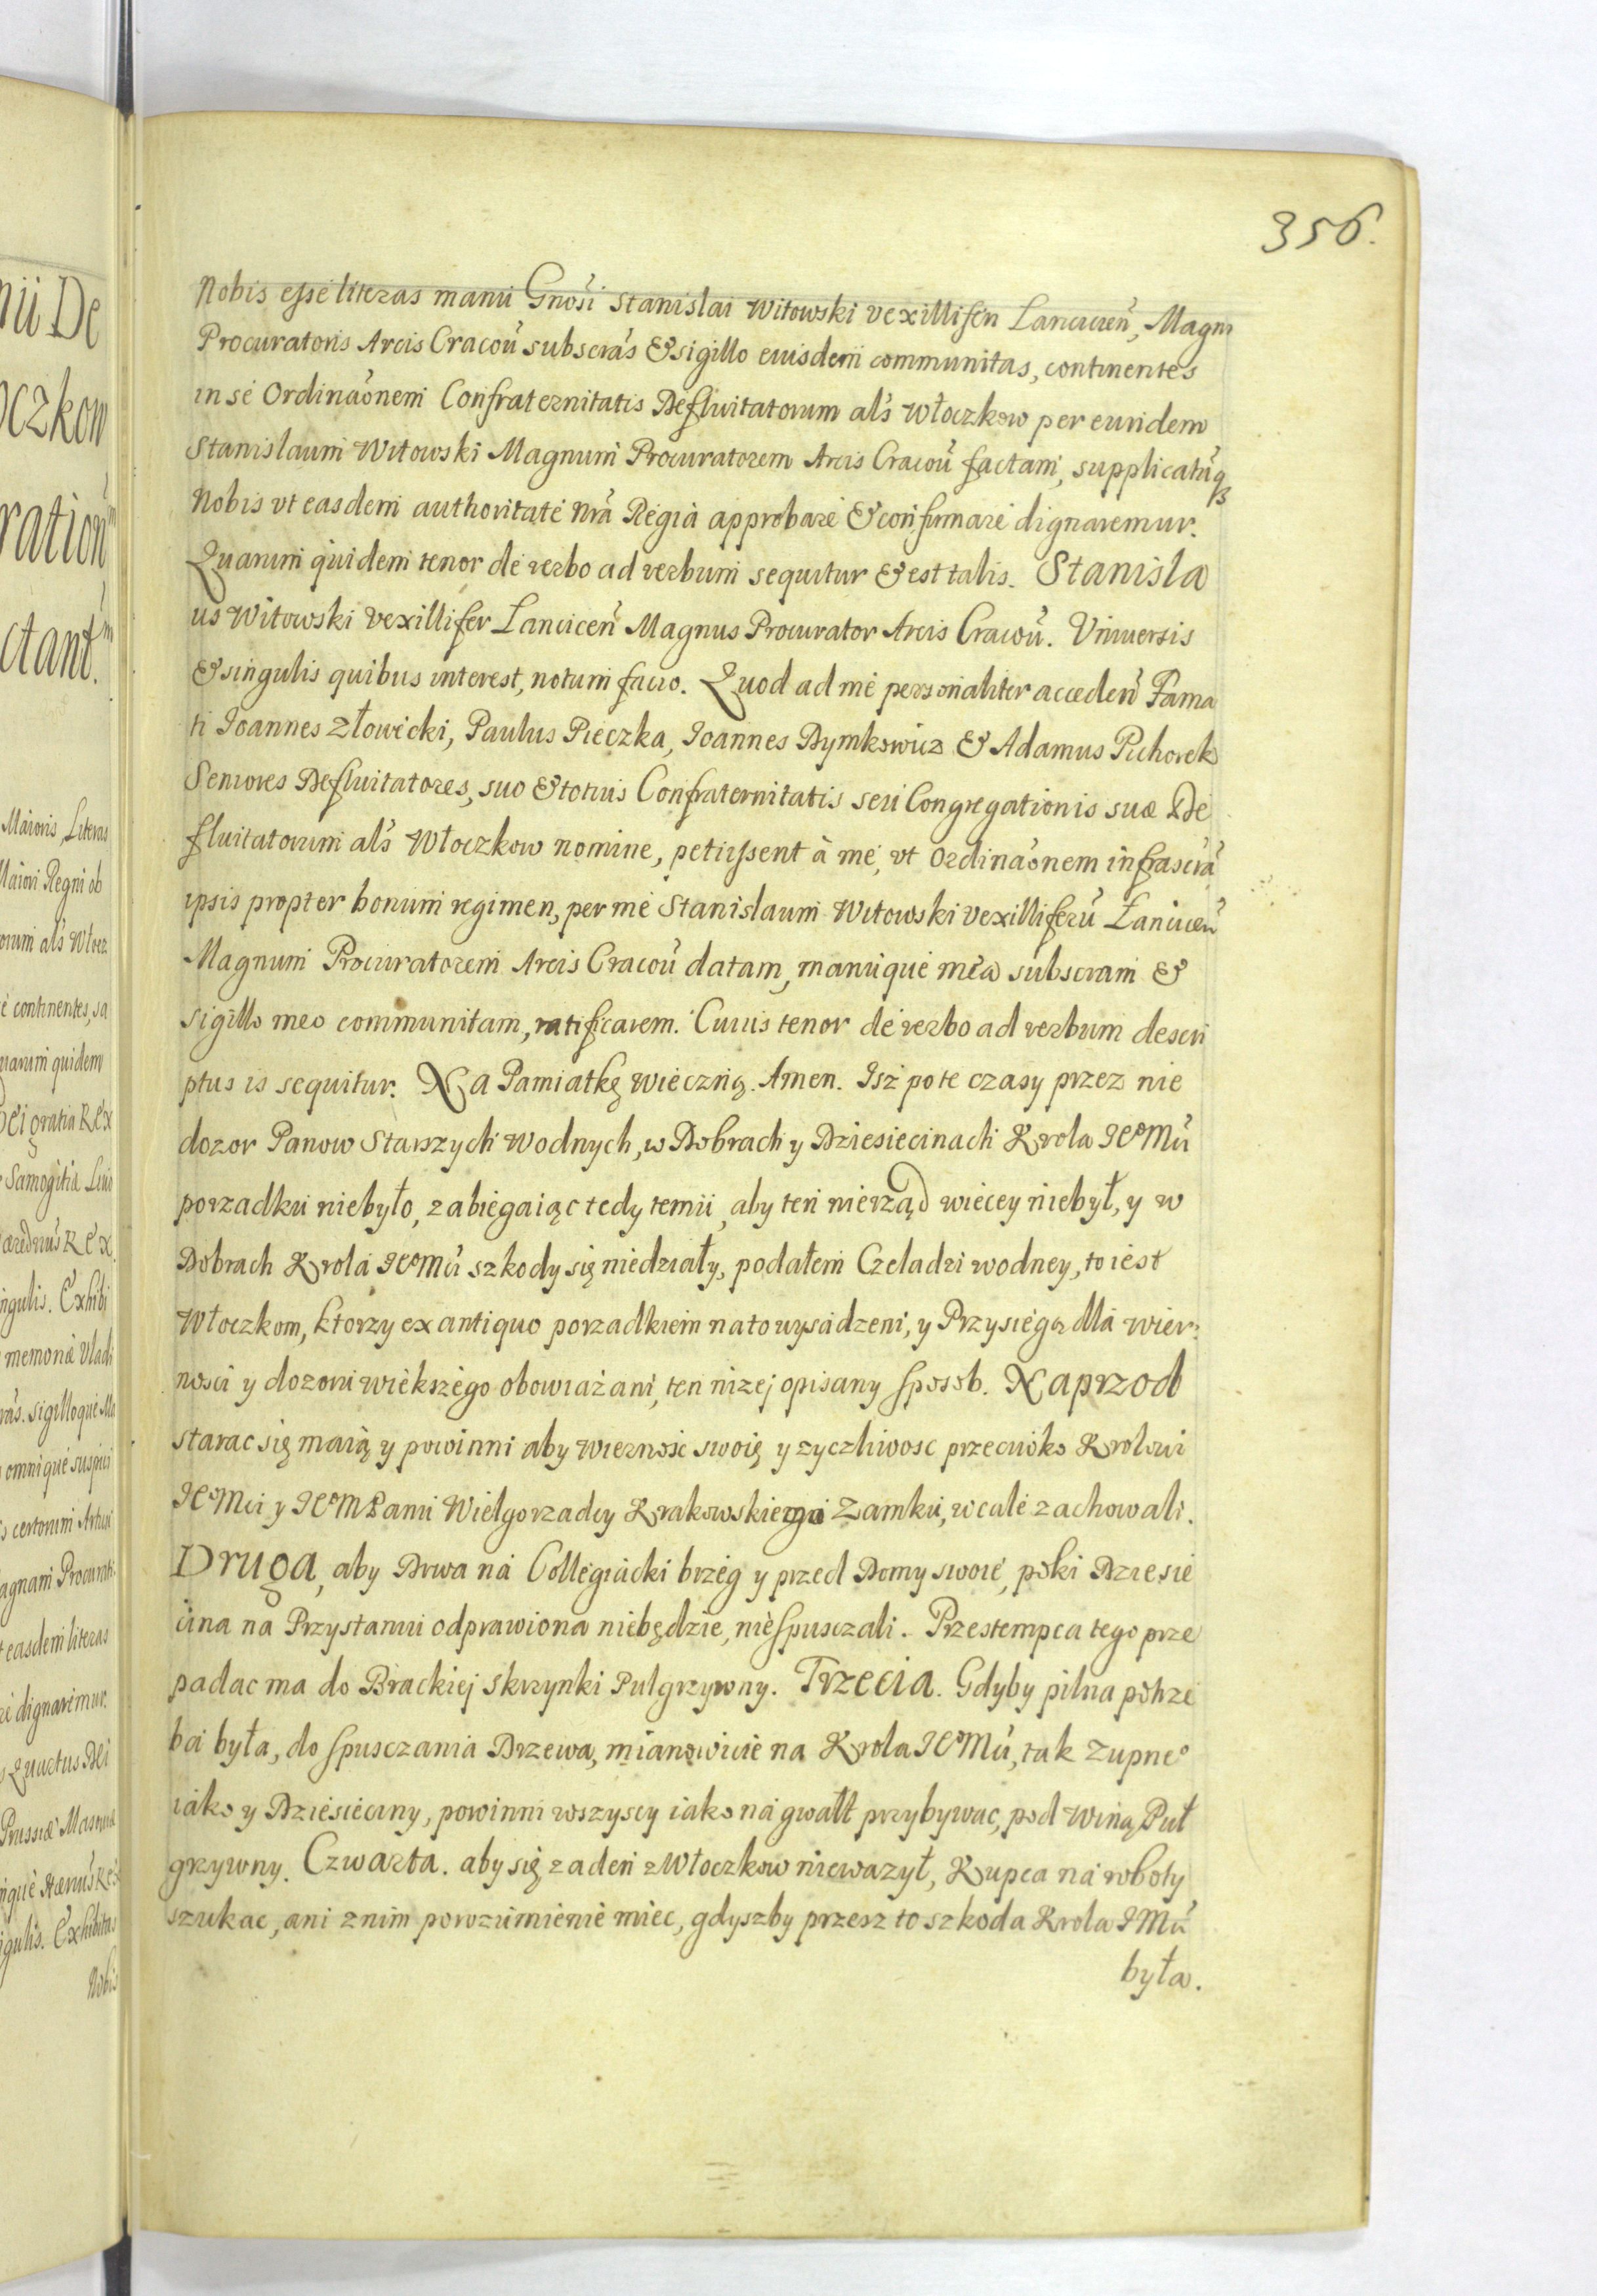 356.
Nobis esse literas manu Gnosi Stanislai Witowski vexilliferi Lancicien, Magni
Procuratoris Arcis Cracou subscras & sigillo eiusdem communitas, continentes
in se Ordinaonem Confraternitatis Defluitatorum als Włoczkow per eundem
Stanislaum Witowski Magnum Procuratorem Arcis Cracou factam, supplicatuq₃
Nobis vt easdem authoritate nra Regia approbare & confirmare dignaremur.
Quarum quidem tenor de verbo ad verbum sequitur & est talis. Stanisla
us Witowski vexillifer Lancicen Magnus Procurator Arcis Cracou. Vniuersis
& singulis quibus interest, notum facio. Quod ad me personaliter acceden Fama
ti Ioannes Złowicki, Paulus Pieczka, Ioannes Dymkowicz & Adamus Pichorek
Seniores Defluitatores, suo & totius Confraternitatis seu Congregationis suæ De
fluitatorum als Włoczkow nomine, petiissent à me, vt Ordinaonem infrascra
ipsis propter bonum regimen, per me Stanislaum Witowski vexilliferu Lancicen
Magnum Procuratorem Arcis Cracou datam, manuque mea subscram &
sigillo meo communitam, ratificarem. Cuius tenor de verbo ad verbum descri
ptus is sequitur. Na Pamiatkę wieczną. Amen. Isz po te czasy przez nie
dozor Panow Starszych wodnych, w Dobrach y Dziesiecinach Krola Jeº Mci
porzadku niebyło, zabiegaiąc tedy temu, aby ten nierząd wiecey niebył, y w
Dobrach Krola Jeº Mci szkody się niedziały, podałem Czeladzi wodney, to iest
Włoczkom, ktorzy ex antiquo porzadkiem na to wysadzeni, y Przysięgą dla wier:
nosci y dozoru większego obowiazani, ten nizej opisany sposob. Naprzod
starac się maią y powinni aby wiernosc swoię y zyczliwosc przeciwko Krolowi
Jeº Mci y Jeº M Panu Wielgorzadcy Krakowskiego Zamku, w cale zachowali.
Druga, aby Drwa na Collegiacki brzeg y przed Domy swoie, poki Dziesie
cina na Przystaniu odprawiona niebędzie, niespusczali. Przestempca tego prze
padac ma do Brackiej skrzynki Pulgrzywny. Trzecia. Gdyby pilna potrze
ba była, do spusczania Drzewa, mianowicie na Krola Jeº Mci, tak Zupneº
iako y Dziesieciny, powinni wszyscy iako na gwałt przybywac, pod winą Puł
grzywny. Czwarta. aby się zaden z Włoczkow niewazył, Kupca na roboty
szukac, ani z nim porozumienie miec, gdyszby przesz to szkoda Krola J Mci
była.